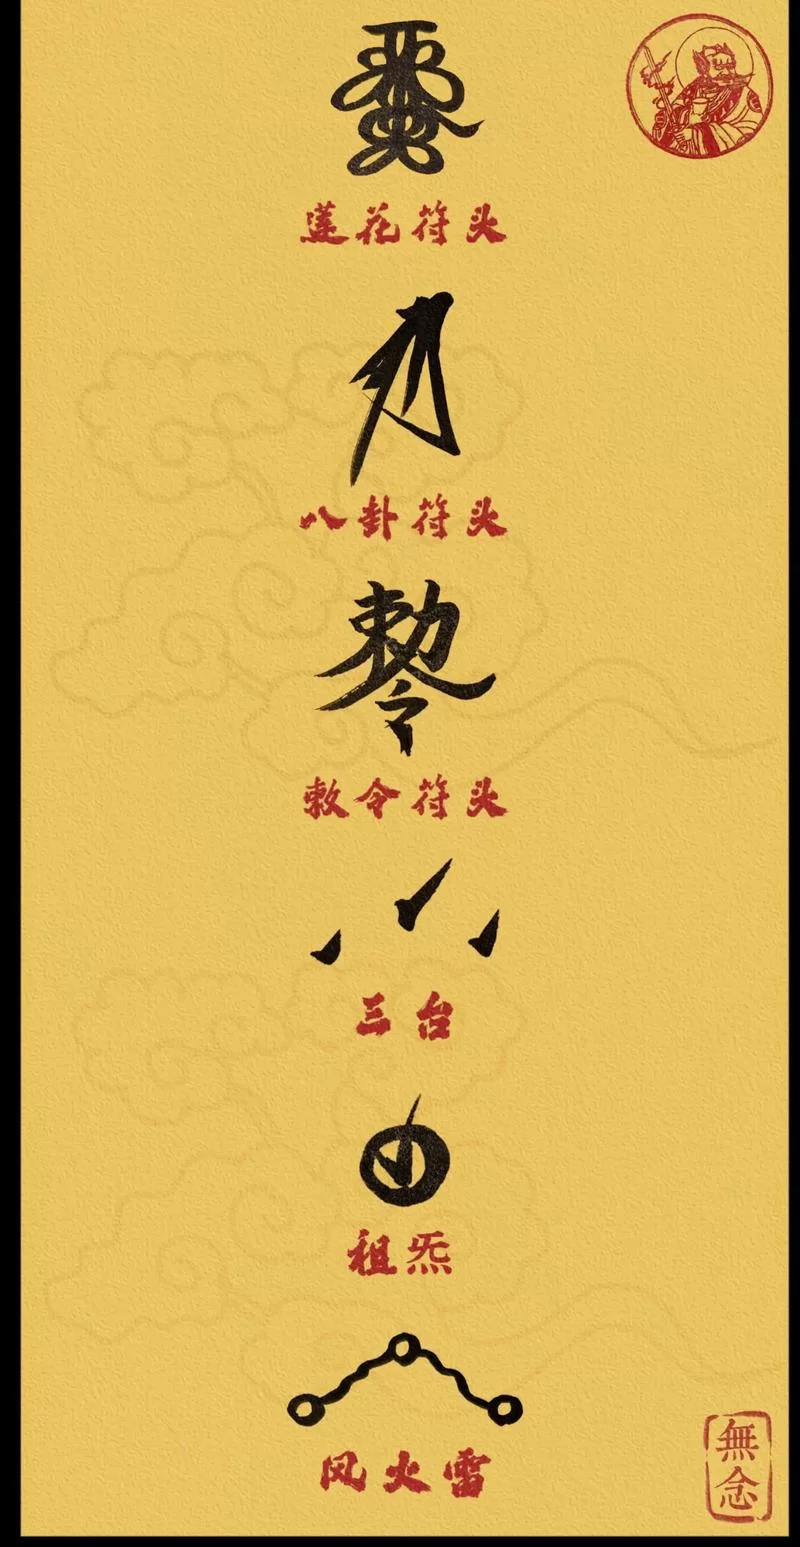 莲花符头
八卦符头
敕令
敕令符头
三台
祖炁
风火雷
無念